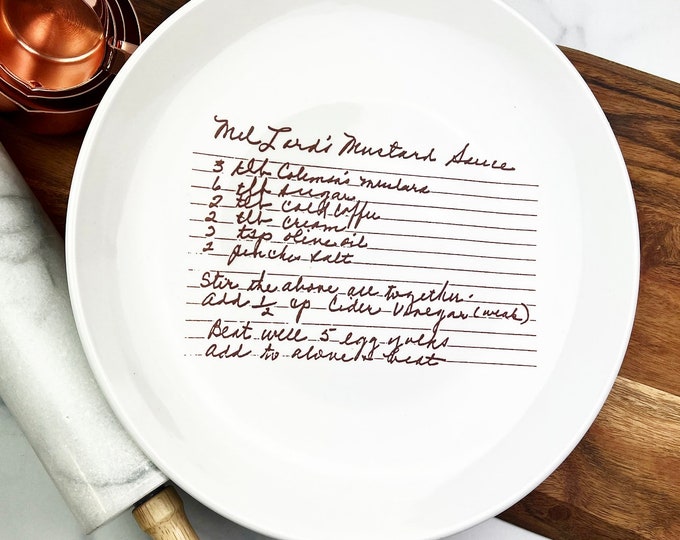 Mel Lard's Mustard Sauce
3 tlb Coleman's Mustard
6 tlb Sugar
2 tlb Cold Coffee
2 tlb Cream
2 tsp olive oil
2 pinches salt
Stir the above all together.
Add 1/2 cp Cider Vinegar (weak)
Beat well 5 egg yolks
add to above & heat